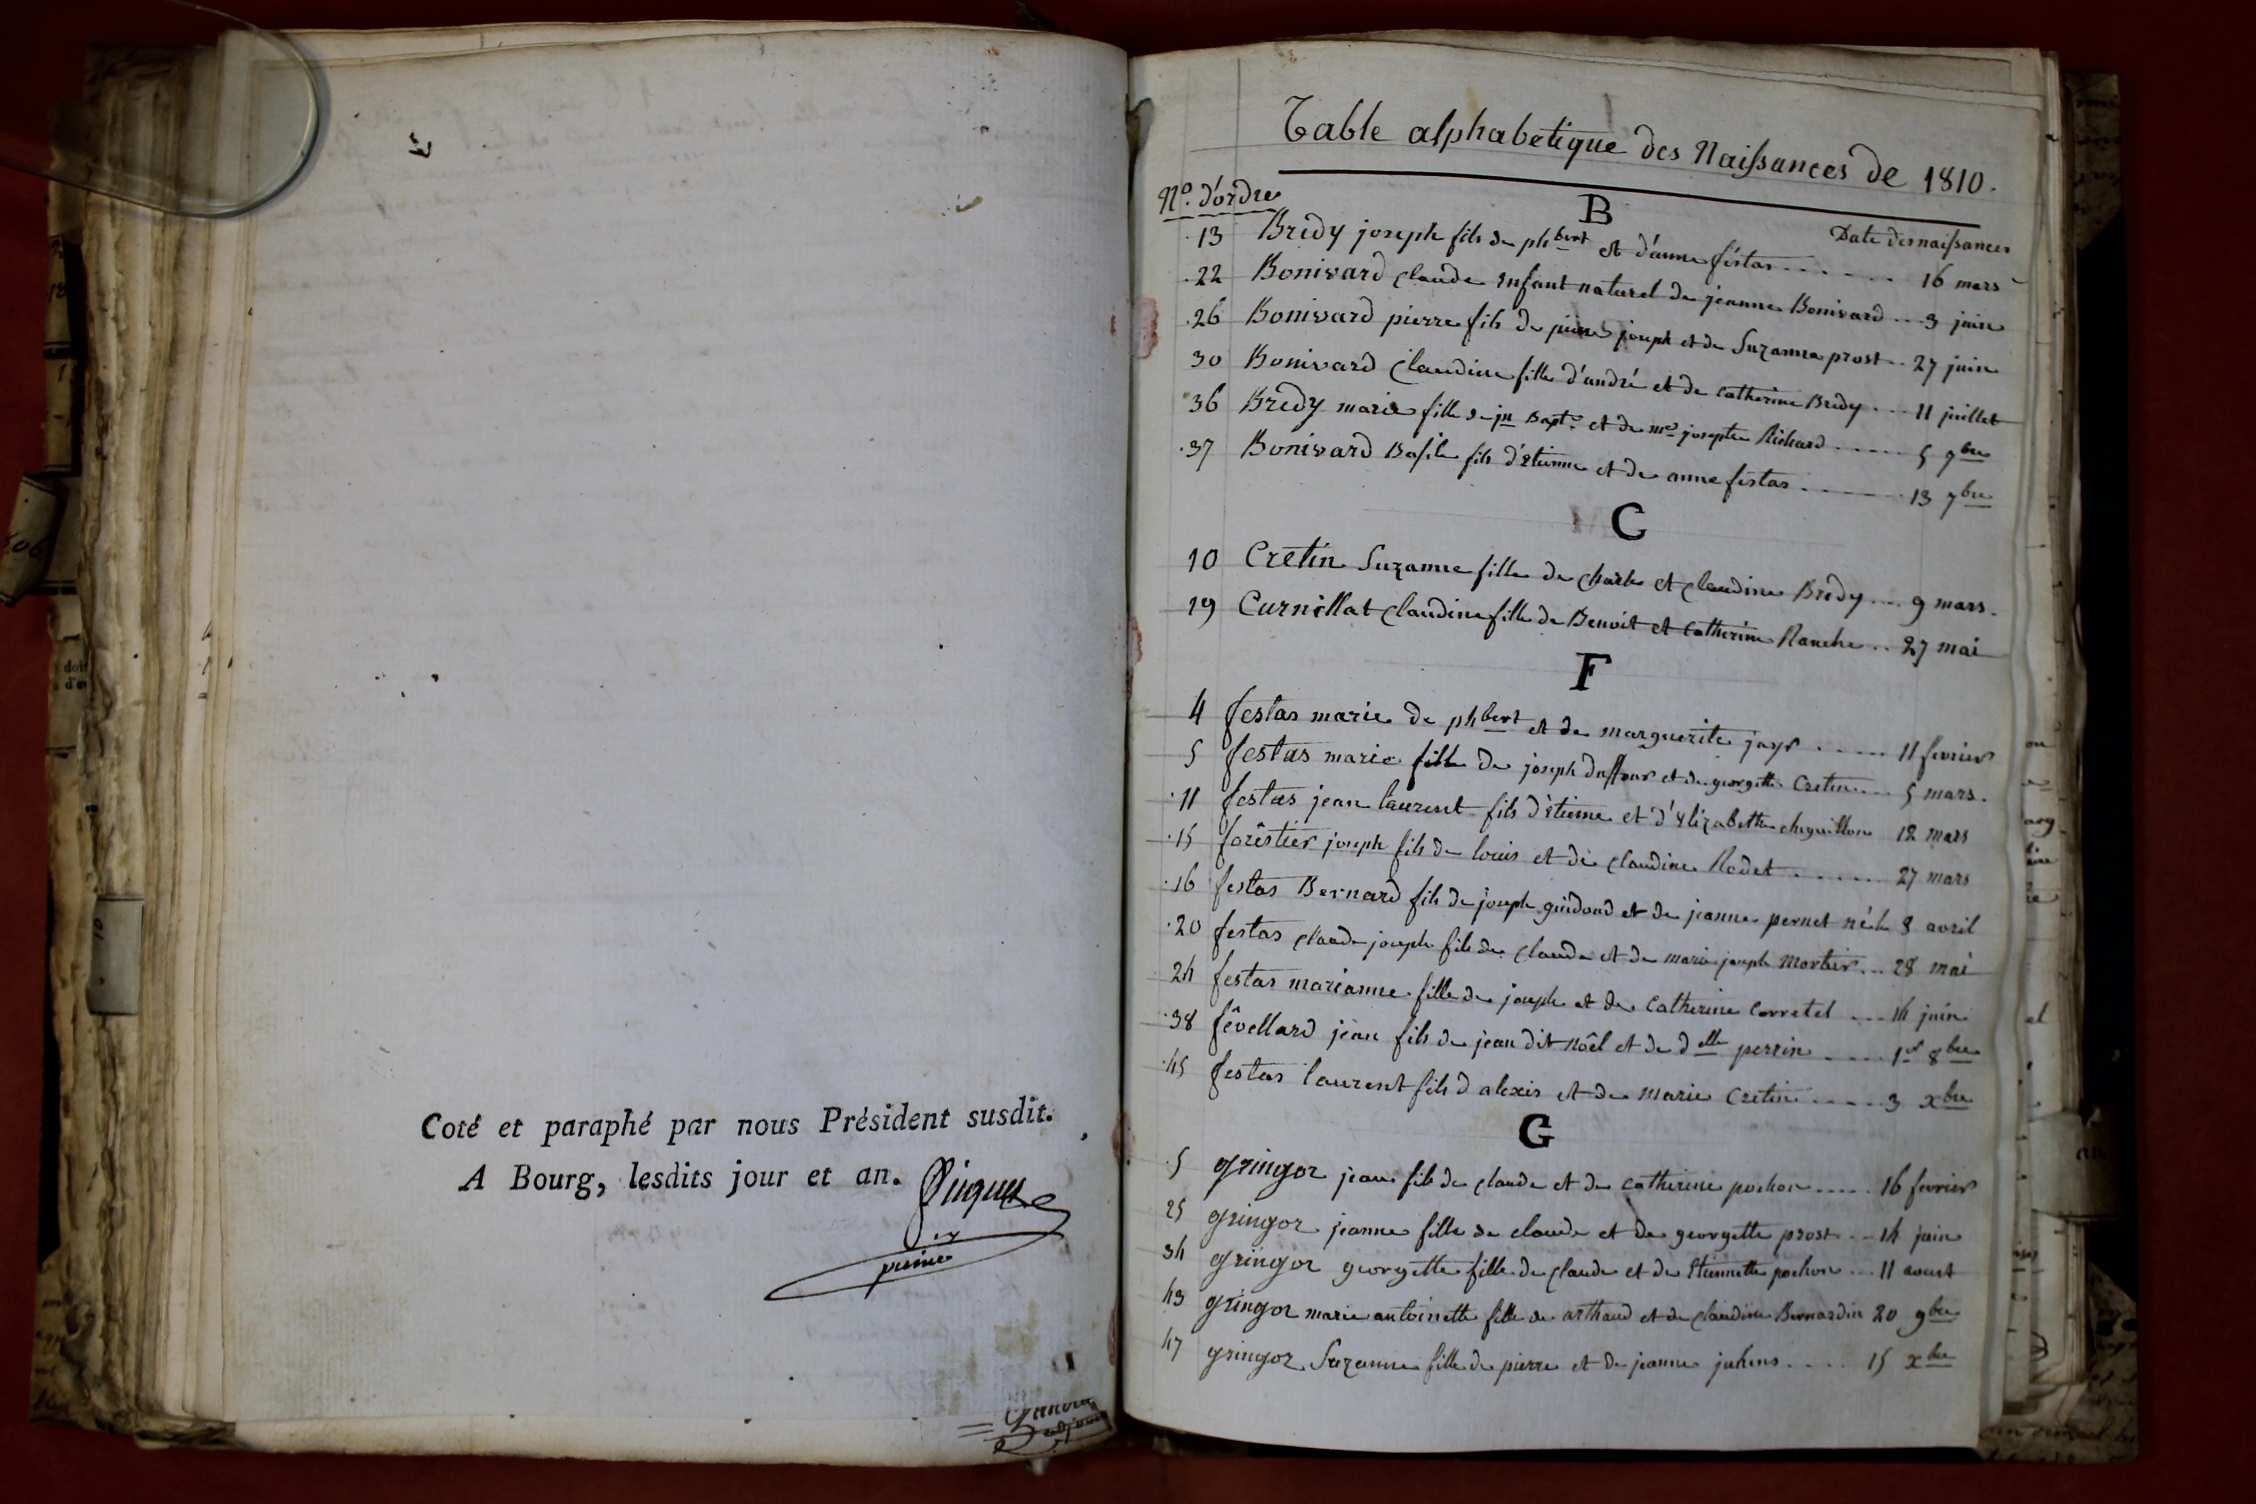 Coté et paraphé par nous Président susdit.
A Bourg, lesdits jour et an.
Table alphabetique des Naissances de 1810.
No. d'ordre
B
Date des naissances
13 Bredy joseph fils de phbert et d'anne festas 16 mars
22 Bonivard claude enfant naturel de jeanne Bonivard 3 juin
26 Bonivard pierre fils de pierre joseph et de Suzanne prost 27 juin
30 Bonivard Claudine fille d'andré et de catherine Bredy 11 juillet
36 Bredy marie fille de jn Bapte. et de me josephte Richard 5 7bre
37 Bonivard Basile fils d'etienne et de anne festas 13 7bre
C
10 Cretin Suzanne fille de charle et claudine Bredy 9 mars.
19 Curnillat Claudine fille de Benoit et catherine Ranche 27 mai
F
4 festas marie de phbert et de marguerite jayr 11 fevrier
5 festas marie fille de joseph duffour et de georgette Cretin 5 mars.
11 festas jean laurent fils d'etienne et d'elizabeth 12 mars
15 forêstier joseph fils de louis et de claudine Rodet 27 mars
16 festas Bernard fils de joseph guidoud et de jeanne pernet né le 8 avril
20 festas claude joseph fils de claude et de marie joseph Mortier 28 mai
24 festas marianne fille de joseph et de catherine Corretel 14 juin
38 fêvellard jean fils de jean dit noêl et de delle perrin 1er 8bre
45 festas laurent fils d alexis et de marie Cretin 3 xbre
G
5 gringoz jean fils de claude et de catherine pochon 16 fevrier
25 gringoz jeanne fille de claude et de georgette prost 14 juin
34 gringoz georgette fille de claude et de Etiennette pochon 11 aoust
43 gringoz marie antoinette fille de arthaud et de claudine Bernardin 20 9bre
47 gringoz Suzanne fille de pierre et de jeanne juhens 15 xbre